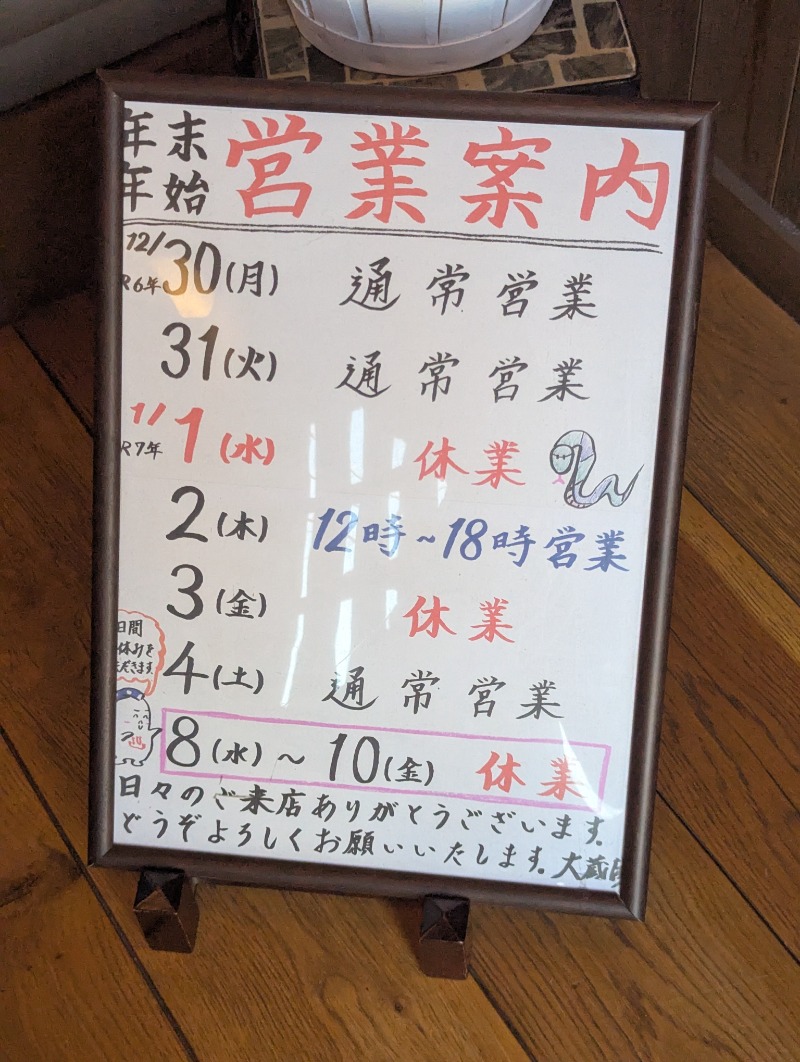 年末
年始
営業案内
12/30(月) 通常営業
R6年
31(火) 通常営業
1/1(水) 休業
R7年
2(木) 12時~18時営業
3(金) 休業
4(土) 通常営業
日間
休みを
ただきます。
8(水)~10(金) 休業
日々のご来店ありがとうございます。
どうぞよろしくお願いいたします。大蔵